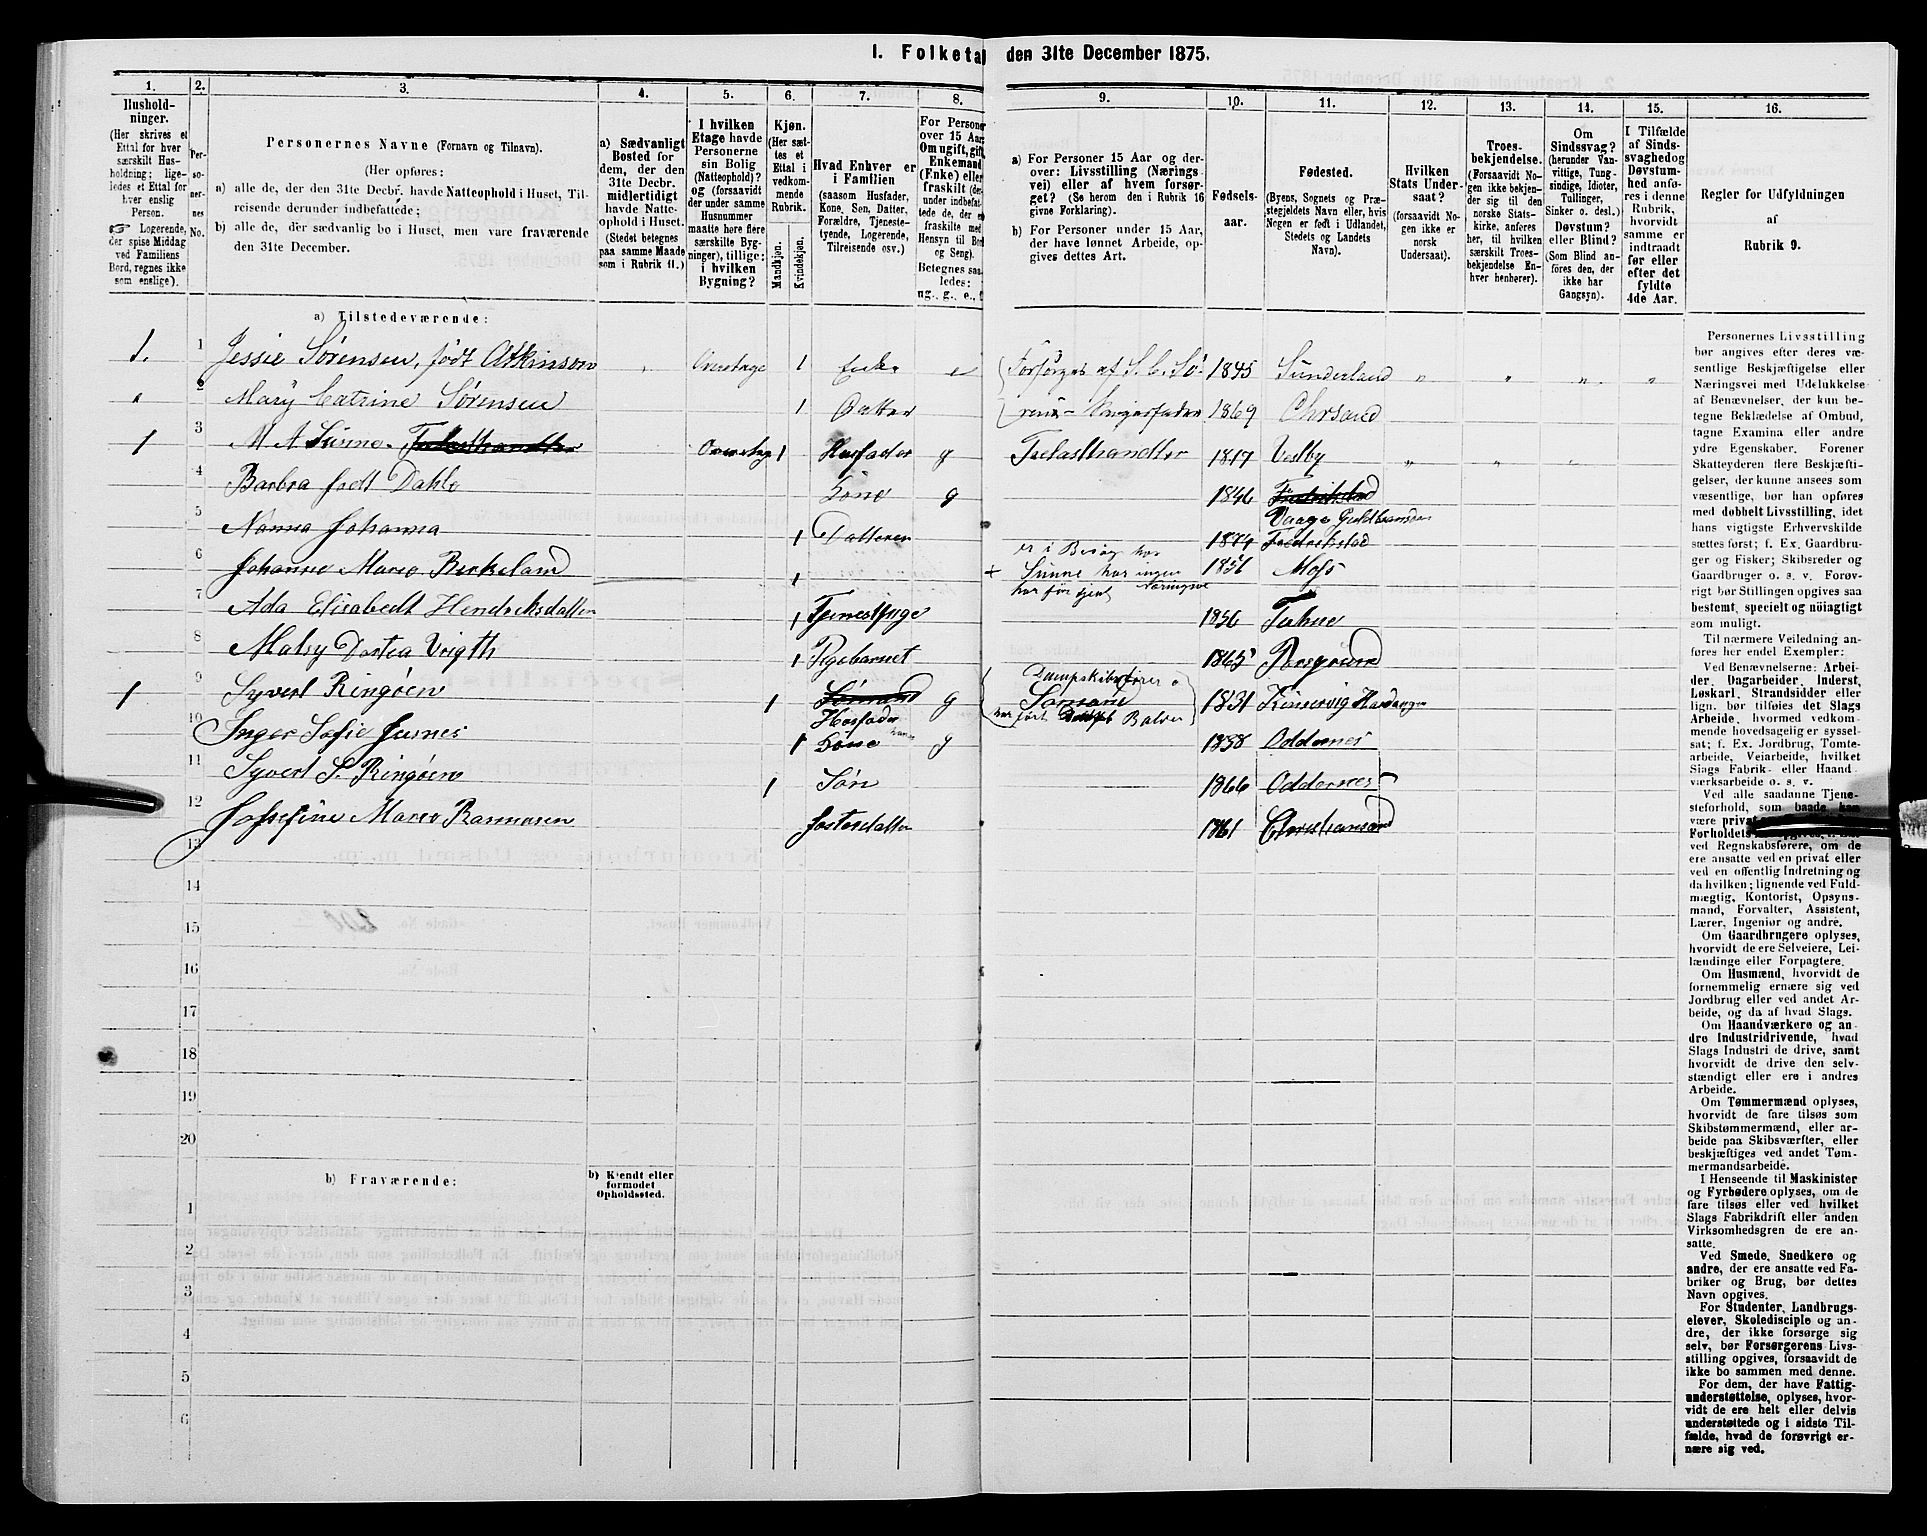 I. Folketa den 31te December 1875.
1. 2. 3. 4. 5. 6. 7. 8. 9. 10. 11. 12. 13. 14. 15. 16.
Hushold-
ninger.
(Her skrives et
Ettal for hver
særskilt Hus-
holdning; lige-
ledes et Ettal for
hver enslig
Person.
Logerende,
der spise Middag
ved Familiens
Bord, regnes ikke
som enslige).
Per-
so-
ner-
nes
No.
Personernes Navne (Fornavn og Tilnavn).
(Her opføres:
a) alle de, der den 31te Decbr. havde Natteophold i Huset, Til-
reisende derunder indbefattede;
b) alle de, der sædvanlig bo i Huset, men vare fraværende
den 31te December.
a) Sædvanligt
Bosted for
dem, der den
31te Decbr.
midlertidigt
havde Natte-
ophold i Huset.
(Stedet betegnes
paa samme Maade
som i Rubrik 11.)
I hvilken
Etage havde
Personerne
sin Bolig
(Natteophold)?
og (forsaavidt
der under samme
Husnummer
maatte høre flere
særskilte Byg-
ninger), tillige:
i hvilken
Bygning?
Kjøn.
(Her sæt-
tes et
Ettal i
vedkom-
mende
Rubrik.
Mandkjøn.
Kvindekjøn.
Hvad Enhver er
i Familien
(saasom Husfader,
Kone, Søn, Datter,
Forældre, Tjeneste-
tyende, Logerende,
Tilreisende osv.)
For Persone
over 15 Aar
Om ugift, gift
Enkemand
(Enke) eller
fraskilt (de
under indbefat-
tede de, der e
fraskilte med
Hensyn til Bo
og Seng).
Betegnes saa
ledes:
ug., g., e.,
a) For Personer 15 Aar og der-
over: Livsstilling (Nærings
vei) eller af hvem forsør-
get? (Se herom den i Rubrik 16
givne Forklaring).
b) For Personer under 15 Aar,
der have lønnet Arbeide, op-
gives dettes Art.
Fødsels-
aar.
Fødested.
(Byens, Sognets og Præ-
stegjeldets Navn eller, hvis
Nogen er født i Udlandet,
Stedets og Landets
Navn).
Hvilken
Stats Under-
saat?
(forsaavidt No-
gen ikke er
norsk
Undersaat).
Troes-
bekjendelse.
(Forsaavidt No-
gen ikke bekjen-
der sig til den
norske Stats-
kirke, anføres
her, til hvilken
særskilte Troes-
bekjendelse En-
hver henhører).
Om
Sindssvag?
(herunder Van-
vittige, Tung-
sindige, Idioter,
Tullinger,
Sinker o. desl.)
Døvstum?
eller Blind?
(Som Blind an-
føres den, der
ikke har
Gangsyn).
I Tilfælde
af Sinds-
svaghed og
Døvstum-
hed anfø-
res i denne
Rubrik,
hvorvidt
samme er
indtraadt
før eller
efter det
fyldte
4de Aar.
Regler for Udfyldningen
af
Rubrik 9.
a) Tilstedeværende:
1. 1 Jessie Sørensen, født Atkinson Overetage 1 Enke e Forsørges af S. C. Sø- 1845 Sunderland
2 Mary Catrine Sørensen 1 Datter rensen Svigerfader 1869 Chrsand
1 3 M. A. Sunne Overetage 1 Husfader g Trælasthandler 1847 Vestby
4 Barbra født Dahle Kone g 1846 Fredrikstad
5 Nanna Johanna 1 Datteren 1874 Fredrikstad
6 Johanne Marie Birkeland 1 er i Besøg hos Sunne har ingen 1856 Moss
7 Ada Elisabedt Hendriksdatter 1 Tjenestpige 1856
8 Malsy Dortea Voigth 1 Pigebarnet 1865 Porsgrund
1 9 Syvert Ringøen 1 Husfader g Dampskibsfører Sømand 1831 Kinservig Hardanger
10 Inger Sofie Jusnes 1 Kone g 1838 Oddernes
11 Syvert S. Ringøen 1 Søn 1866 Oddernes
12 Josefine Marie Rasmusen fosterdatter 1861 Christiansand
13
14
15
16
17
18
19
20
b) Fraværende:
b) Kjendt eller
formodet
Opholdssted.
1
2
3
4
5
6
Personernes Livsstilling
bør angives efter deres væ-
sentlige Beskjæftigelse eller
Næringsvei med Udelukkelse
af Benævnelser, der kun be-
tegne Beklædelse af Ombud,
tagne Examina eller andre
ydre Egenskaber. Forener
Skatteyderen flere Beskjæfti-
gelser, der kunne ansees som
væsentlige, bør han opføres
med dobbelt Livsstilling, idet
hans vigtigste Erhvervskilde
sættes først; f. Ex. Gaardbru-
ger og Fisker; Skibsreder og
Gaardbruger o. s. v. Forøv-
rigt bør Stillingen opgives saa
bestemt, specielt og nøiagtigt
som muligt.
Til nærmere Veiledning an-
føres her endel Exempler:
Ved Benævnelserne: Arbei-
der, Dagarbeider, Inderst,
Løskarl, Strandsidder eller
lign. bør tilføies det Slags
Arbeide, hvormed vedkom-
mende hovedsagelig er syssel-
sat; f. Ex. Jordbrug, Tomte-
arbeide, Veiarbeide, hvilket
Slags Fabrik- eller Haand-
værksarbeide o. s. v.
Ved alle saadanne Tjene-
steforhold, som baade kan
være privat
Forholdets
ved Regnskabsførere, om de
ere ansatte ved en privat eller
ved en offentlig Indretning og
da hvilken; lignende ved Fuld-
mægtig, Kontorist, Opsyns-
mand, Forvalter, Assistent,
Lærer, Ingeniør og andre.
Om Gaardbrugere oplyses,
hvorvidt de ere Selveiere, Lei-
lændinge eller Forpagtere.
Om Husmænd, hvorvidt de
fornemmelig ernære sig ved
Jordbrug eller ved andet Ar-
beide, og da af hvad Slags.
Om Haandværkere og an-
dre Industridrivende, hvad
Slags Industri de drive, samt
hvorvidt de drive den selv-
stændigt eller ere i andres
Arbeide.
Om Tømmermænd oplyses,
hvorvidt de fare tilsøs som
Skibstømmermænd, eller ar-
beide paa Skibsværfter, eller
beskjæftiges ved andet Tøm-
mermandsarbeide.
I Henseende til Maskinister
og Fyrbødere oplyses, om de
fare tilsøs eller ved hvilket
Slags Fabrikdrift eller anden
Virksomhedsgren de ere an-
satte.
Ved Smede, Snedkere og
andre, der ere ansatte ved Fa-
briker og Brug, bør dettes
Navn opgives.
For Studenter, Landbrugs-
elever, Skoledisciple og an-
dre, der ikke forsørge sig
selv, bør Forsørgerens Livs-
stilling opgives, forsaavidt de
ikke bo sammen med denne.
For dem, der have Fattig-
understøttelse, oplyses, hvor-
vidt de ere helt eller delvis
understøttede og i sidste Til-
fælde, hvad de forøvrigt er-
nære sig ved.